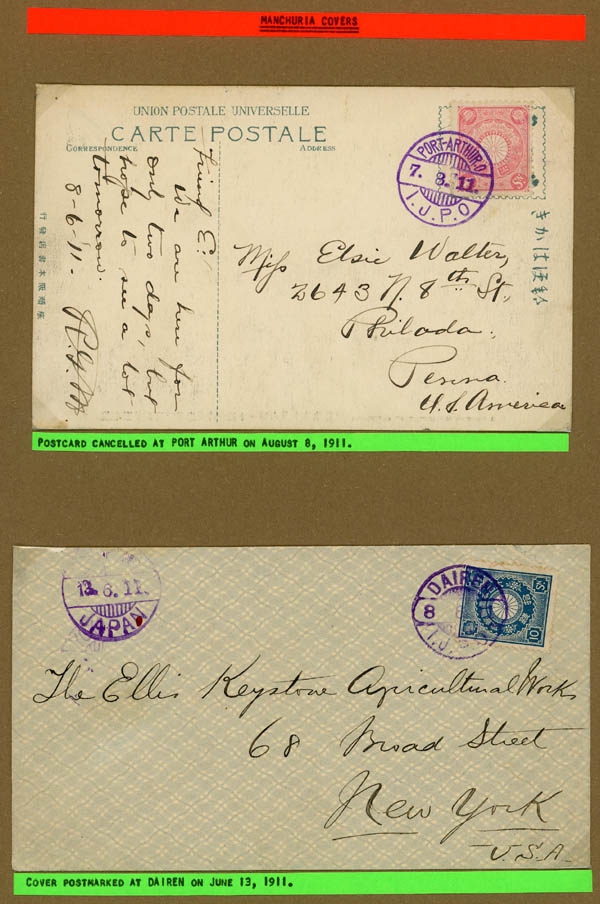 MANCHURIA COVERS
UNION POSTALE UNIVERSELLE
CARTE POSTALE
CORRESPONDENCE
ADDRESS
Friend E.
We are here for
only two days, but
hope to see a lot
tomorrow.
8-6-'11.
PORT-ARTHUR.
7. 8. 11.
I.J.P.O
きかは便郵
Miss Elsie Walter,
2643 N. 8th St.,
Philada.,
Penna.
U.S. America
POSTCARD CANCELLED AT PORT ARTHUR ON AUGUST 8, 1911.
13.6.11.
JAPAN
DAIREN
8
I.J.
10
The Ellis Keystone Agricultural Works
68 Broad Street
New York
U.S.A.
COVER POSTMARKED AT DAIREN ON JUNE 13, 1911.